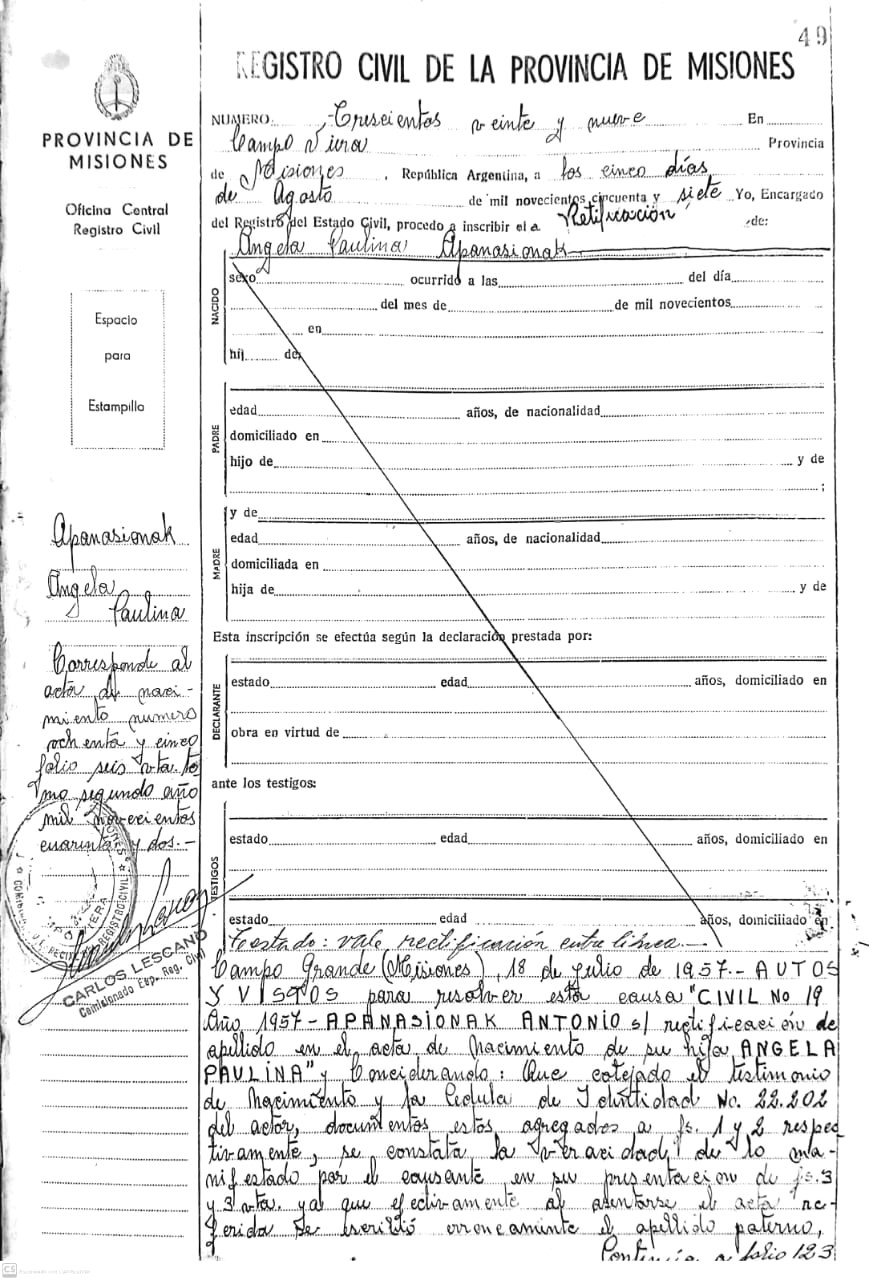 49
REGISTRO CIVIL DE LA PROVINCIA DE MISIONES
PROVINCIA DE
MISIONES
Oficina Central
Registro Civil
Espacio
para
Estampillo
NUMERO: Trescientos veinte y nueve En
Campo Viera Provincia
de Misiones, República Argentina, a los cinco días
de Agosto de mil novecientos cincuenta y siete Yo, Encargado
del Registro del Estado Civil, procedo a inscribir el a Retificación de:
Angela Paulina Apanasionak
NACIDO
sexo ocurrido a las del día
del mes de de mil novecientos
en
hij de
PADRE
edad años, de nacionalidad
domiciliado en
hijo de y de
;
MADRE
y de
edad años, de nacionalidad
domiciliada en
hija de y de
Esta inscripción se efectúa según la declaración prestada por:
DECLARANTE
estado edad años, domiciliado en
obra en virtud de
ante los testigos:
TESTIGOS
estado edad años, domiciliado en
estado edad años, domiciliado en
Apanasionak
Angela
Paulina
Corresponde al
acta de naci-
miento numero
ochenta y cinco
folio seis vta. to
mo segundo año
mil novecientos
cuarenta y dos.-
CARLOS LESCANO
Comisionado Esp. Reg. Civil
Testado: vale, rectificación entre línea.-
Campo Grande (Misiones), 18 de julio de 1957.- AUTOS
Y VISTOS para resolver esta causa "CIVIL No 19
Año 1957 - APANASIONAK ANTONIO s/ rectificación de
apellido en el acta de Nacimiento de su hija ANGELA
PAULINA" y Conciderando: Que cotejado el testimonio
de Nacimiento y la Cedula de Identidad No. 22.202
del actor, documentos estos agregados a fs. 1 y 2 respec
tivamente, se constata la veracidad de lo ma-
nifestado por el causante en su presentacion de fs.3
y 3 vta. ya que efectivamente al asentarse el acta re-
ferida se escribió erroneamente el apellido paterno,
Continúa a folio 123